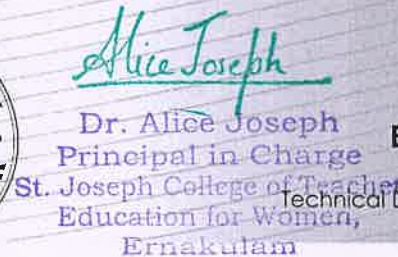 Alice Joseph
Dr. Alice Joseph
Principal in Charge
St. Joseph College of Teacher
Education for Women,
Ernakulam
Technical